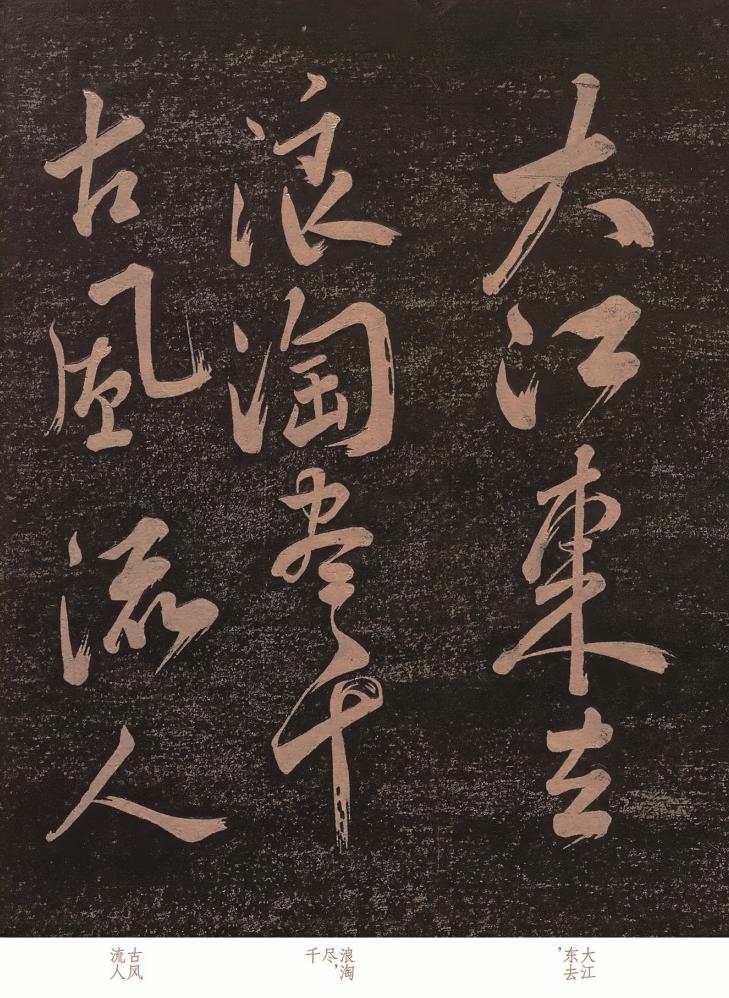 大江東去
浪淘尽千
古風流人
大江
东去，
浪淘
尽，
千
古风
流人